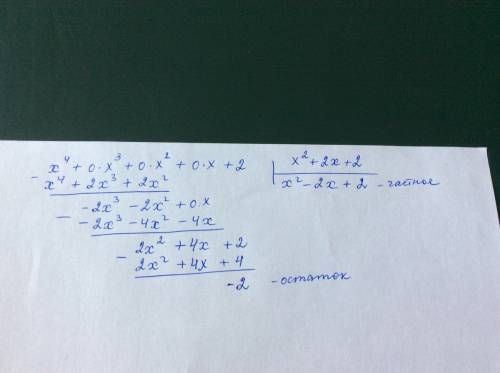 x⁴ + 0·x³ + 0·x² + 0·x + 2 | x² + 2x + 2
- x⁴ + 2x³ + 2x² | x² - 2x + 2 - частное
-2x³ - 2x² + 0·x
- -2x³ - 4x² - 4x
2x² + 4x + 2
- 2x² + 4x + 4
-2 - остаток